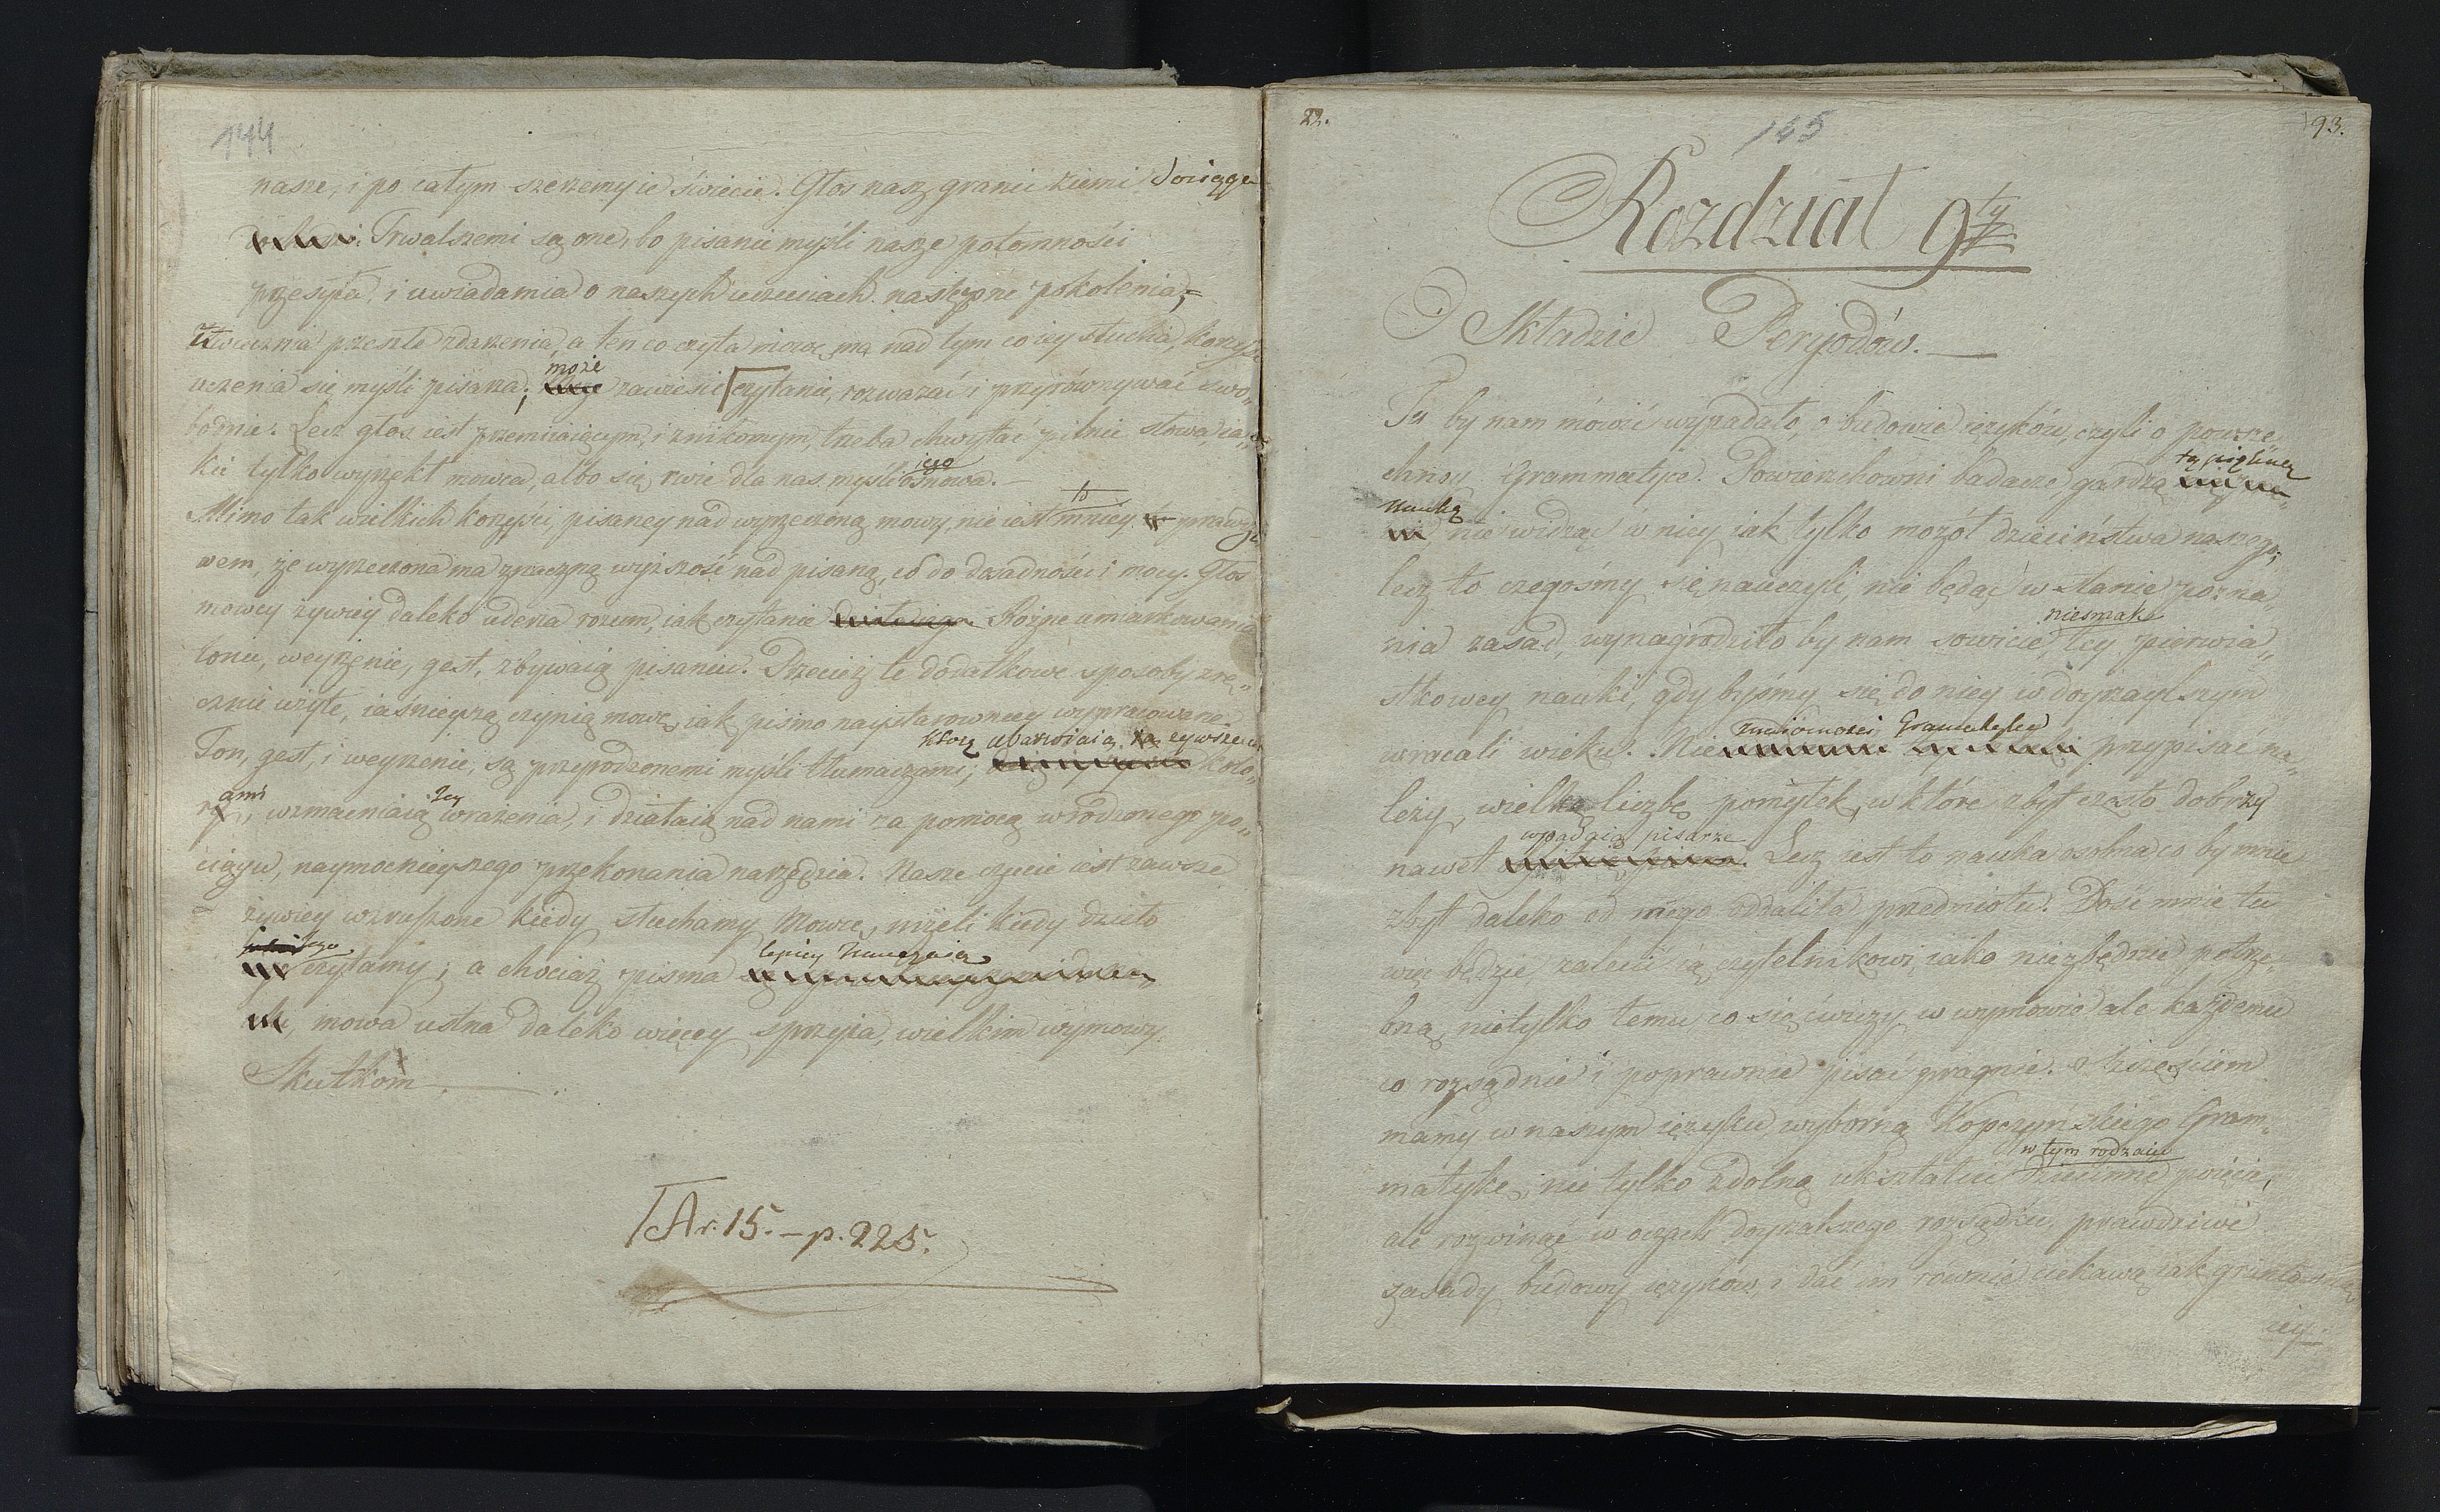 144
nasze, i po całym szerzemy ie świecie. Głos nasz granic ziemi dosięga
Trwalszemi są one, bo pisanie myśli nasze potomności
przesyła, i uwiadamia o naszych uczuciach następne pokolenia;
uwiecznia przeszłe zdarzenia, a ten co czyta mowę ma nad tym co iey słucha, korzyść
uczenia się myśli pisarza; może zawiesić czytanie, rozważać i przyrównywać swo„
bodnie. Lecz głos iest przemiiaiącym, i znikomym, trzeba chwytać pilnie słowa ia„
kie tylko wyrzekł mowca, albo się rwie dla nas myśli iego osnowa. —
Mimo tak wielkich korzyści, pisaney nad wyrzeczoną mowy, nie iest to mniey prawdzi„
wem, że wyrzeczona ma znaczną wyższość nad pisaną, co do dosadności i mocy. Głos
mowcy żywiey daleko uderza rozum, iak czytanie Rożne umiarkowania
tonu, weyrzenie, gest, zbywaią pisaniu. Przecież te dodatkowe sposoby zrę„
cznie użyte, iaśnieyszą czynią mowę, iak pismo naystarowniey wypracowane.
Ton, gest, i weyrzenie, są przyrodzonemi myśli tłumaczami; którą ubarwiaią żywszemi kolo„
rami, wzmacniaią iey wrażenia, i działaią nad nami za pomocą wrodzonego po„
ciągu, naymocnieyszego przekonania narzędzia. Nasze czucie iest zawsze
żywiey wzruszone kiedy słuchamy Mowcę, niżeli kiedy dzieło
iego czytamy; a chociaż pisma lepiey nauczaią
mowa ustna daleko więcey sprzyia, wielkim wymowy
Skutkom.
Ar. 15. – p. 225.
22.
145
193.
Rozdział 9ty
O Składzie Peryodów. —
Tu by nam mówić wypadało, o budowie ięzyków, czyli o powsze„
chney Grammatyce. Powierzchowni badacze gardzą tą piękną
nauką nie widząc w niey iak tylko mozół dzieciństwa naszego;
lecz to czegośmy się nauczyli, nie będąc w stanie pozna„
nia zasad, wynagrodziło by nam sowicie niesmak tey pierwia„
stkowey nauki, gdy byśmy się do niey w doyrzalszym
wracali wieku. Nieznaiomości Grammatyki przypisać na„
leży, wielką liczbę pomyłek, w które zbyt często dobrzy
nawet wpadaią pisarze. Lecz iest to nauka osobna co by mnie
zbyt daleko od mego oddaliła przedmiotu. Dość mnie tu
więc będzie zalecić ią czytelnikowi, iako niezbędnie potrze„
bną, nietylko temu co się ćwiczy w wymowie ale każdemu
co rozsądnie i poprawnie pisać pragnie. Szczęściem
mamy w naszym ięzyku, wyborną Kopczyńskiego Gram„
matykę, nie tylko zdolną ukształcić w tym rodzaiu dziecinne poięcie,
ale rozwinąć w oczach doyrzalszego rozsądku, prawdziwe
zasady budowy ięzyków, i dać im równie ciekawą iak gruntowną
iey